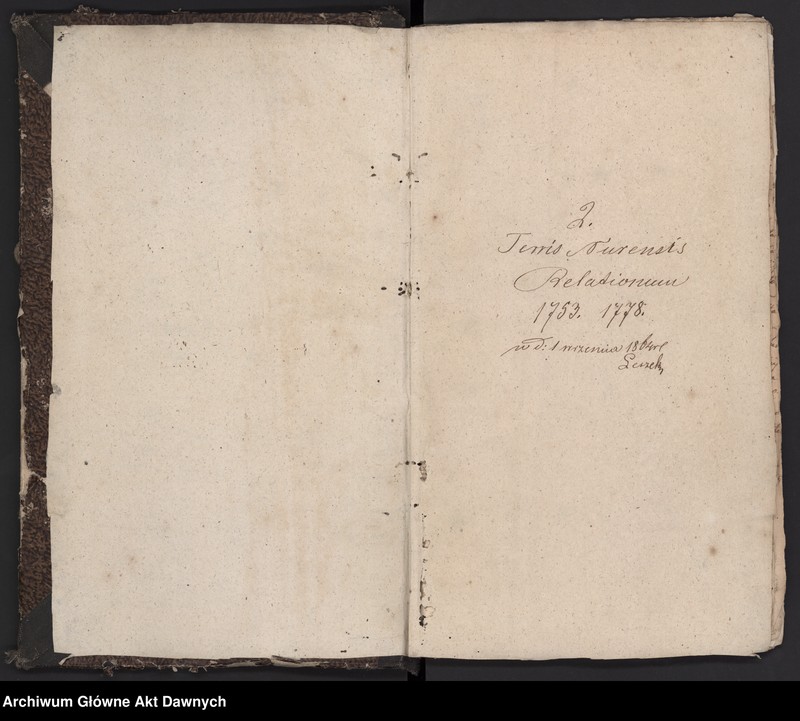 2.
Terris Nurensis
Relationum
1753. 1778.
w d: 1 września 186
Archiwum Główne Akt Dawnych